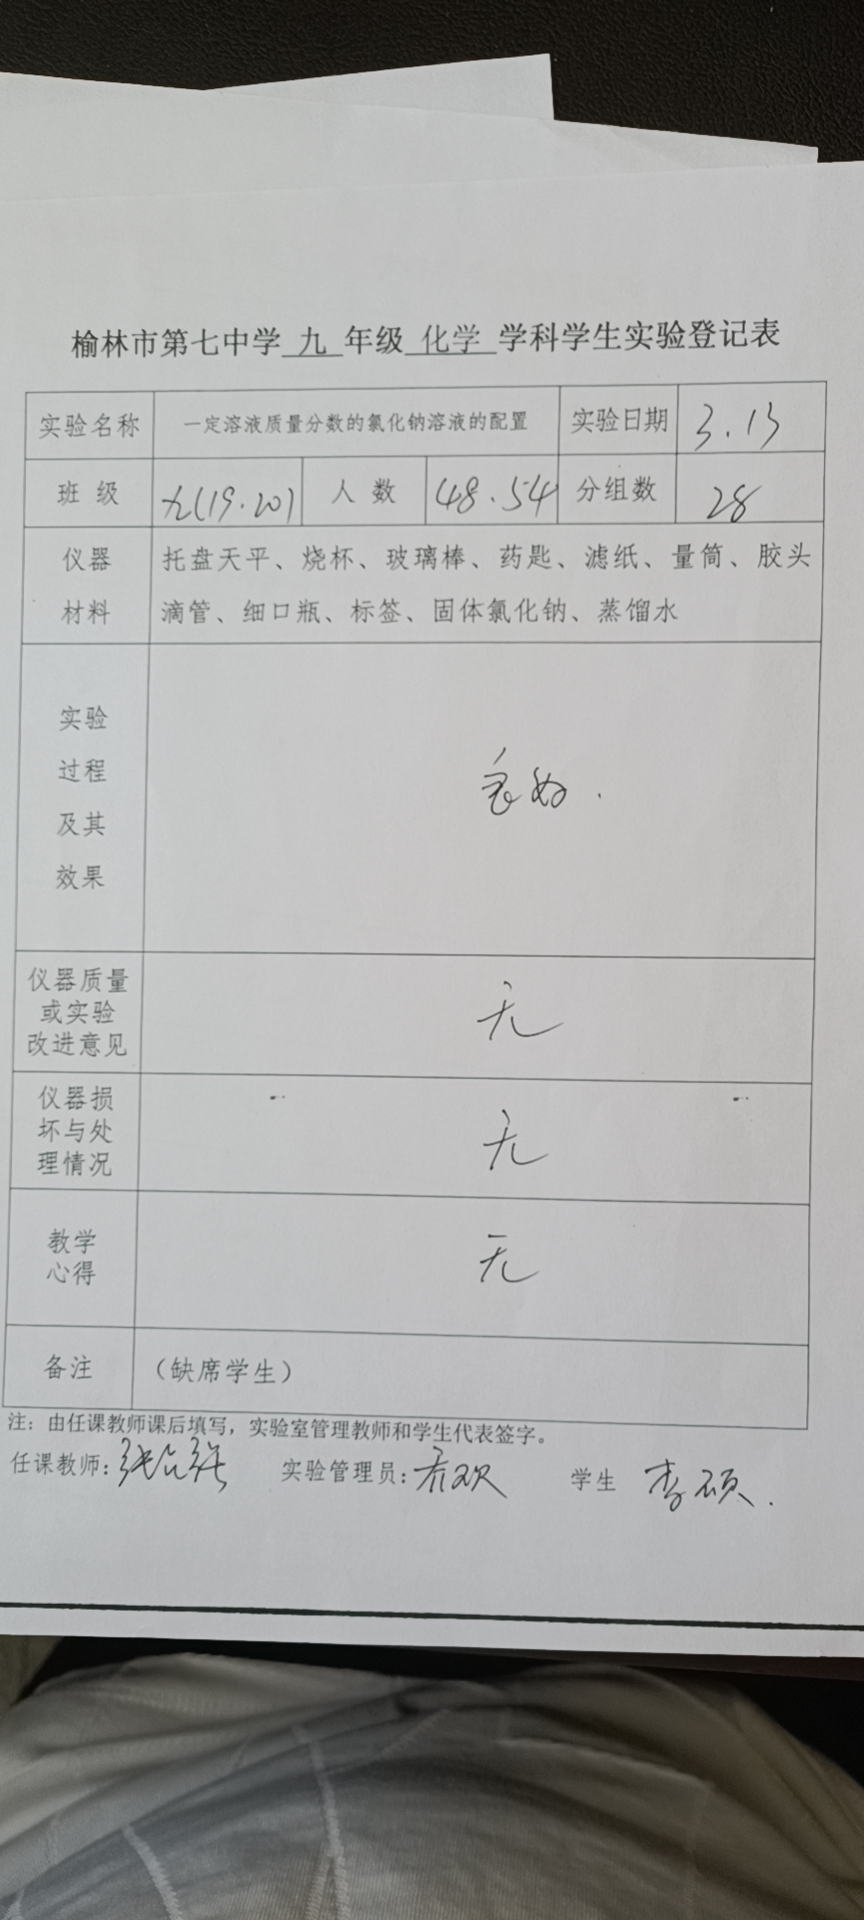 榆林市第七中学 九 年级 化学 学科学生实验登记表
实验名称 一定溶液质量分数的氯化钠溶液的配置 实验日期 3.13
班 级 九(19.20) 人 数 48.54 分组数 28
仪器 托盘天平、烧杯、玻璃棒、药匙、滤纸、量筒、胶头
材料 滴管、细口瓶、标签、固体氯化钠、蒸馏水
实验
过程
及其
效果
良好.
仪器质量
或实验
改进意见
无
仪器损
坏与处
理情况
无
教学
心得
无
备注 （缺席学生）
注：由任课教师课后填写，实验室管理教师和学生代表签字。
任课教师: 实验管理员: 学生 李硕.